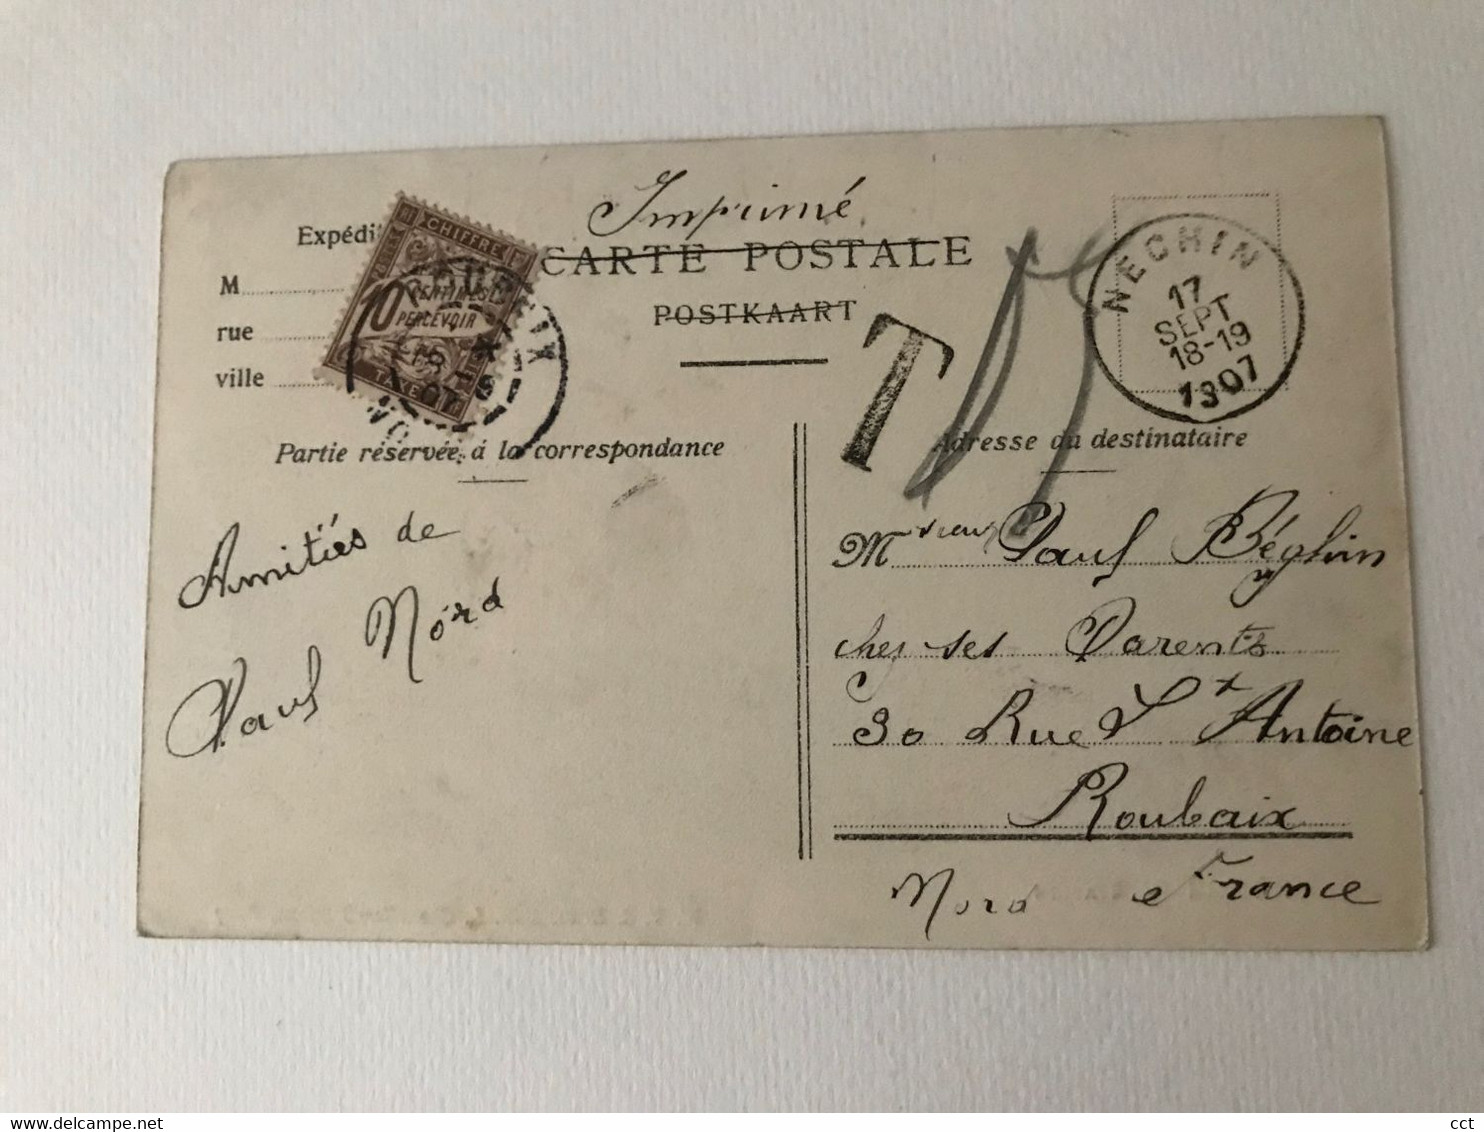 Imprimé
CARTE POSTALE
POSTKAART
Expédi
M
rue
ville
CHIFFRE
10 CENTIMES
PERCEVOIR
TAXE
T
NECHIN
17
SEPT
18-19
1907
Partie réservée à la correspondance
Adresse du destinataire
Amitiés de
Paul Nord
Monsieur Paul Béghin
chez ses Parents
30 Rue St Antoine
Roubaix
Nord France
delcampe.net
cct